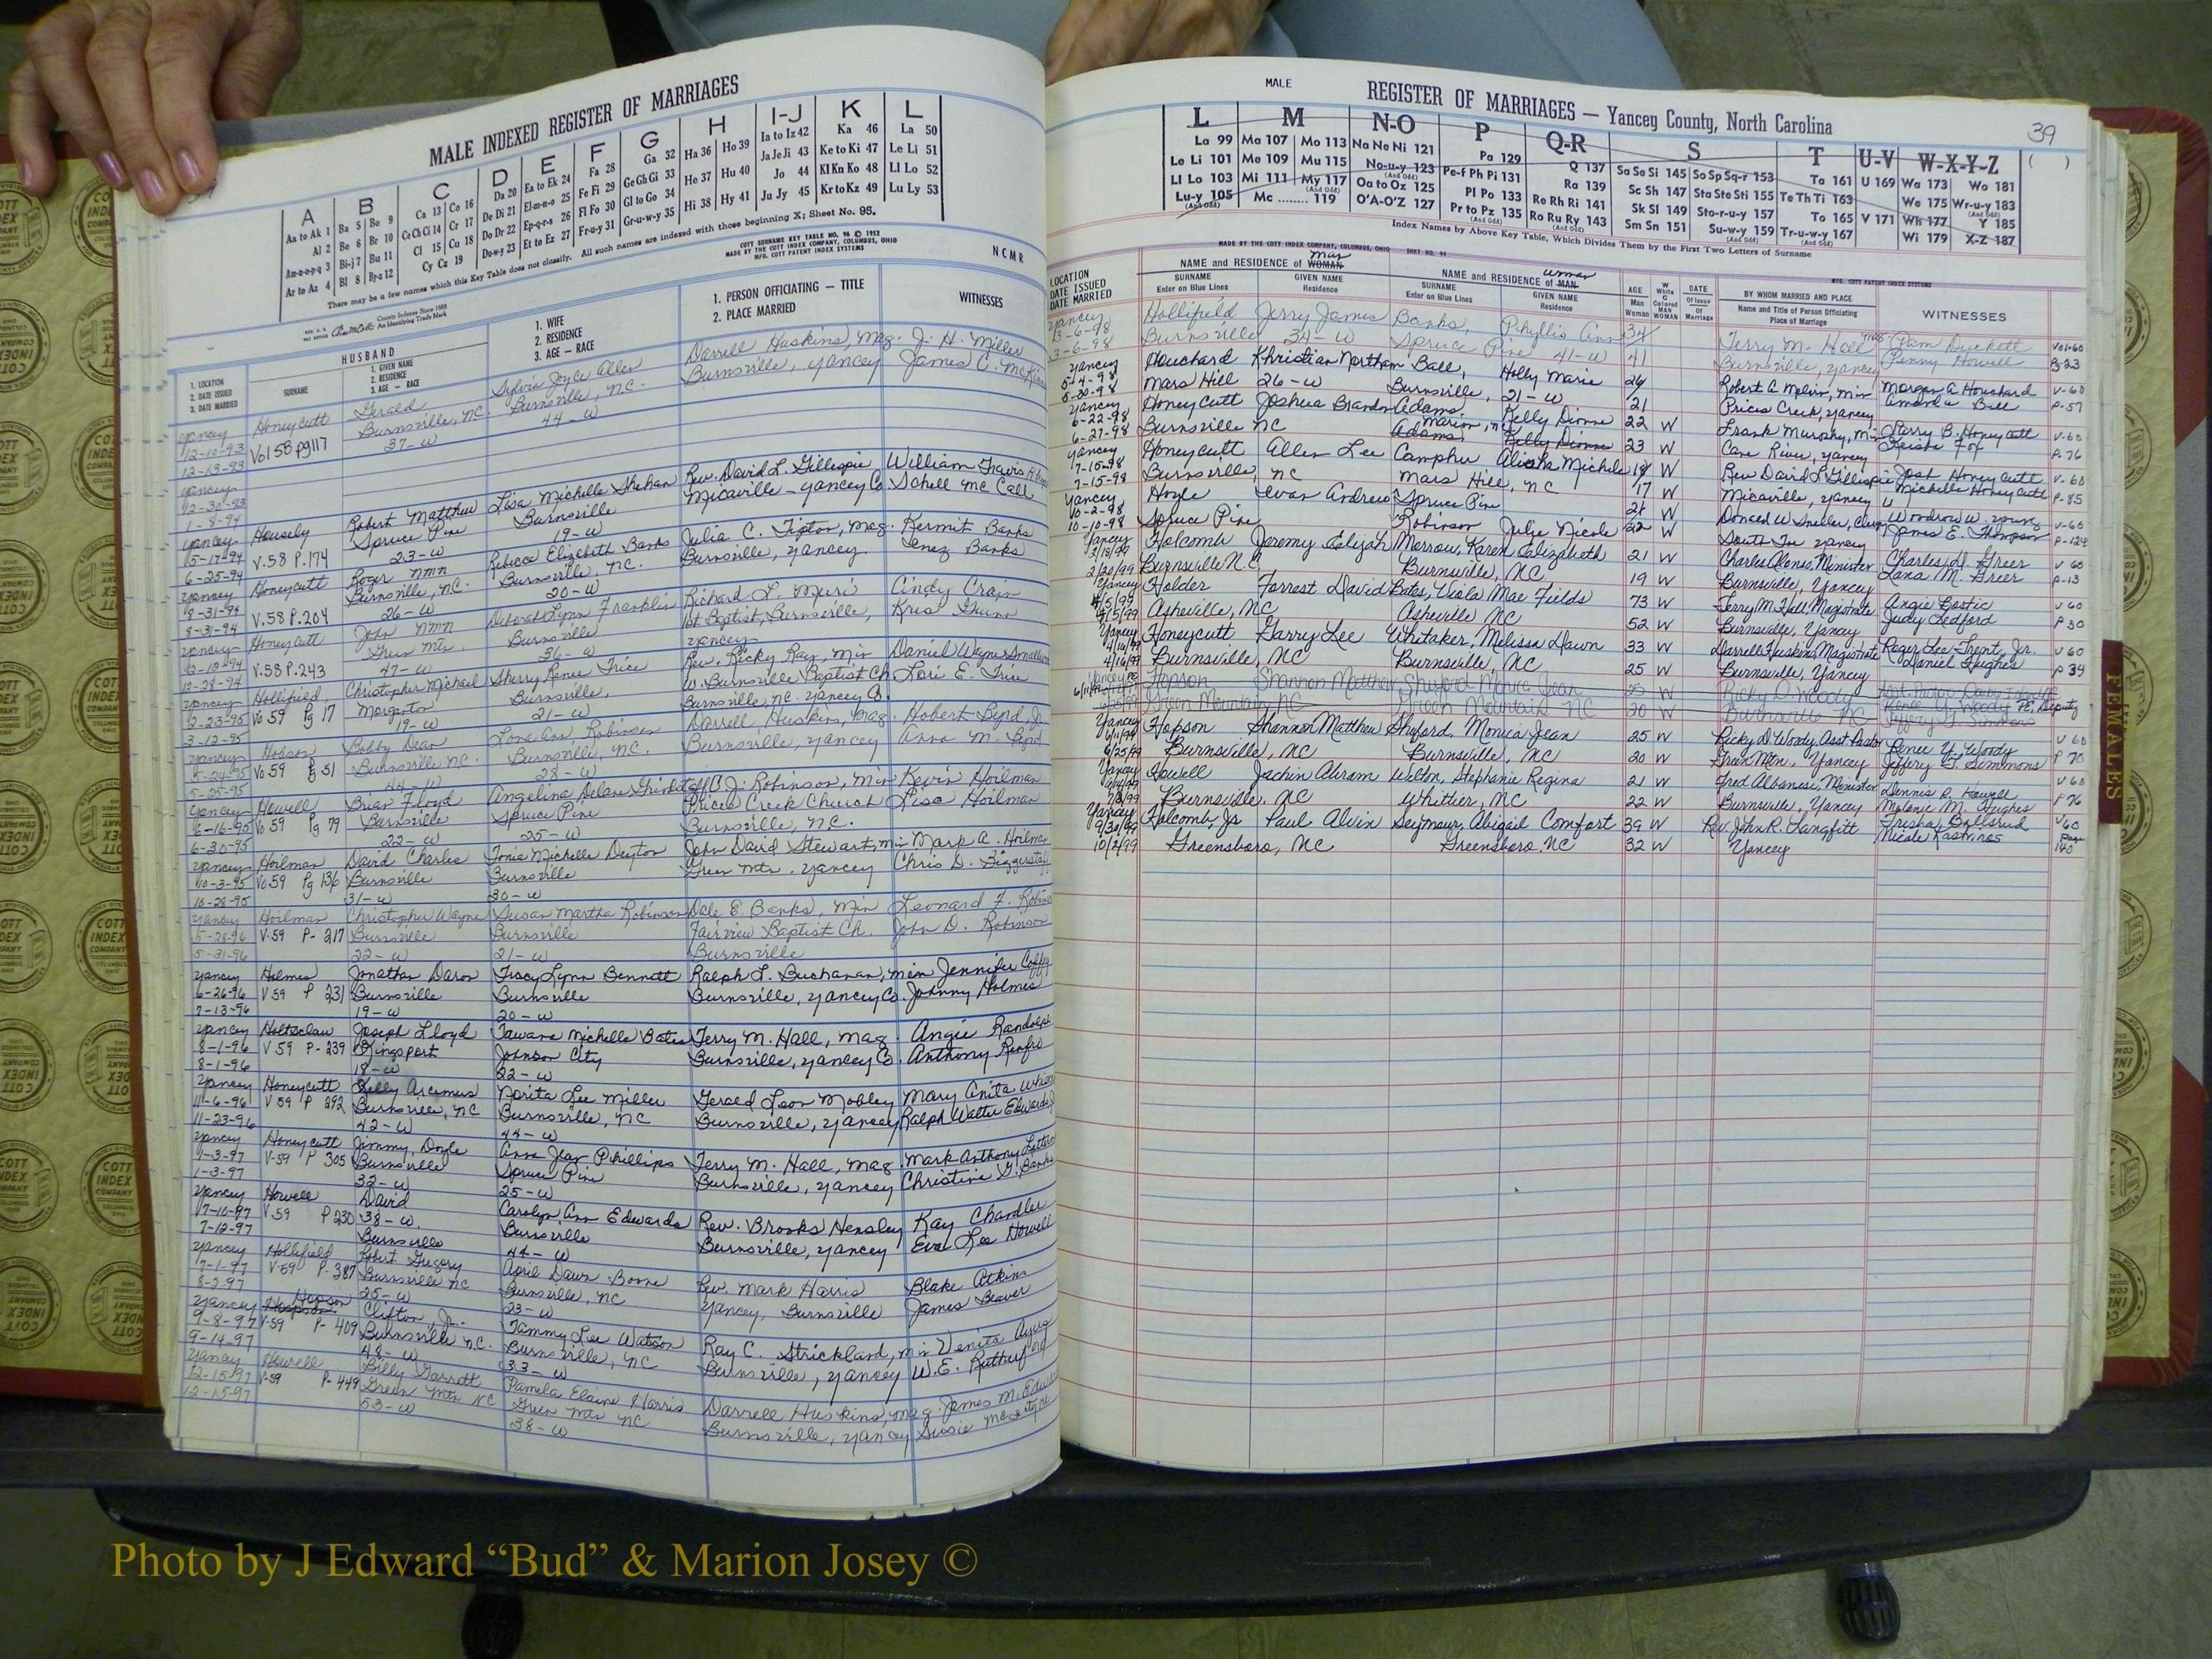 MALE INDEXED REGISTER OF MARRIAGES
A B C D E F G H I-J K L
Aa to Ak 1 Ba 5 Bo 9 Ca 13 Co 16 Da 20 Ea to Ek 24 Fa 28 Ga 32 Ha 36 Ho 39 Ia to Iz 42 Ka 46 La 50
Al 2 Be 6 Br 10 Ce Ch Ci 14 Cr 17 De Di 21 El-m-n-o 25 Fe Fi 29 Ge Gh Gi 33 He 37 Hu 40 Ja Je Ji 43 Ke to Ki 47 Le Li 51
Am-n-o-p-q 3 Bi-j 7 Bu 11 Cl 15 Cu 18 Do Dr 22 Ep-q-r-s 26 Fl Fo 30 Gl to Go 34 Hi 38 Hy 41 Jo 44 Kl Kn Ko 48 Ll Lo 52
Ar to Az 4 Bl 8 By-z 12 Cy Cz 19 Du-w-y 23 Et to Ez 27 Fr-u-y 31 Gr-u-w-y 35 Ju Jy 45 Kr to Kz 49 Lu Ly 53
There may be a few names which this Key Table does not classify. All such names are indexed with those beginning X; Sheet No. 95.
COTT SURNAME KEY TABLE NO. 96 © 1952
BY THE COTT INDEX COMPANY, COLUMBUS, OHIO
MFG. COTT PATENT INDEX SYSTEMS
NCMR
County Indexes Since 1888
An Identifying Trade Mark
1. LOCATION
2. DATE ISSUED
3. DATE MARRIED
HUSBAND
SURNAME
1. GIVEN NAME
2. RESIDENCE
3. AGE — RACE
1. WIFE
2. RESIDENCE
3. AGE — RACE
1. PERSON OFFICIATING — TITLE
2. PLACE MARRIED
WITNESSES
Yancey Honeycutt Gerald Sylvia Joyce Allen Darrell Huskins, Mag. J. H. Miller
12-10-93 Vol 58 pg 117 Burnsville, NC. Burnsville, N.C. Burnsville, Yancey James C.
12-19-93 37-W 44-W
Yancey
12-30-93
1-8-94
Yancey Housely Robert Matthew Lisa Michelle Shehan Rev. David L. Gillespie William Travis
5-17-94 V.58 P.174 Spruce Pine Burnsville Micaville - Yancey Co. Schell McCall
6-25-94 23-W 19-W
Yancey Honeycutt Roger NMN Rebecca Elizabeth Banks Julia C. Tipton, Mag. Kermit Banks
8-31-94 V.58 P.204 Burnsville, NC. Burnsville, N.C. Burnsville, Yancey. Inez Banks
8-31-94 26-W 20-W
Yancey Honeycutt John NMN Deborah Lynn Franklin Richard L. Cindy Crain
V.58 P.243 Green Mtn. Burnsville 1st Baptist, Burnsville, Kris
12-28-94 47-W 36-W Yancey
Yancey Hollifield Christopher Michael Sherry Renee Trice Rev. Ricky Ray, Min Daniel Wayne
2-23-95 Vo 59 Pg 17 Morganton Burnsville, W. Burnsville Baptist Ch. Lori E. Trice
3-12-95 19-W 21-W Burnsville, NC. Yancey Co.
Yancey Hobson Bobby Dean Robinson Darrell Huskins, Mag. Hobert Byrd, Jr.
5-24-95 Vo 59 Pg 51 Burnsville NC. Burnsville, NC. Burnsville, Yancey Anna M. Byrd
5-25-95 44-W 28-W
Yancey Howell Brian Floyd Angelina Delane C. J. Robinson, Min Kevin Hoilman
6-16-95 Vo 59 Pg 79 Burnsville Spruce Pine Prices Creek Church Lisa Hoilman
6-30-95 22-W 25-W Burnsville, N.C.
Yancey Hoilman David Charles Tonia Michelle Deyton John David Stewart, Min Mark A. Hoilman
10-3-95 Vo 59 Pg 136 Burnsville Burnsville Green Mtn. Yancey Chris D. Biggerstaff
10-28-95 31-W 30-W
Yancey Hoilman Christopher Wayne Susan Martha Robinson Dale E. Banks, Min Leonard F.
5-28-96 V-59 P-217 Burnsville Burnsville Fairview Baptist Ch. John D. Robinson
5-31-96 22-W 21-W Burnsville
Yancey Holmes Jonathan Daron Tracy Lynn Bennett Ralph L. Buchanan, Min Jennifer Coffey
6-26-96 V 59 P 231 Burnsville Burnsville Burnsville, Yancey Co. Johnny Holmes
7-13-96 19-W 20-W
Yancey Holtsclaw Joseph Lloyd Tawana Michelle Bates Terry M. Hall, Mag. Angie Randolph
8-1-96 V 59 P-239 Kingsport Johnson City Burnsville, Yancey Co. Anthony Renfro
8-1-96 18-W 22-W
Yancey Honeycutt Kelly Arcemus Norita Lee Miller Gerald Leon Mobley Mary Anita
11-6-96 V 59 P 292 Burnsville, NC Burnsville, NC Burnsville, Yancey Ralph Walter Edwards
11-23-96 42-W 44-W
Yancey Honeycutt Jimmy Doyle Anna Jean Phillips Terry M. Hall, Mag. Mark Anthony
1-3-97 V-59 P 305 Burnsville Spruce Pine Burnsville, Yancey Christine G. Banks
1-3-97 32-W 25-W
Yancey Howell David Carolyn Ann Edwards Rev. Brooks Hensley Kay Chandler
7-10-97 V 59 P 230 38-W. Burnsville Burnsville, Yancey Eva Lee Howell
7-12-97 Burnsville 44-W
Yancey Hollifield Robert Gregory April Dawn Boone Rev. Mark Harris Blake Atkins
7-1-97 V-59 P-387 Burnsville NC Burnsville, NC Yancey, Burnsville James Beaver
8-2-97 25-W 23-W
Yancey Hopson Clifton, Jr. Tammy Lee Watson Ray C. Strickland, Min Venita Ayers
9-8-97 V-59 P-409 Burnsville N.C. Burnsville, NC Burnsville, Yancey W.E. Rutherford
9-14-97 48-W 33-W
Yancey Howell Billy Garrett Pamela Elaine Harris Darrell Huskins, Mag. James M.
12-15-97 V-59 P-449 Green Mtn NC Green Mtn NC Burnsville, Yancey Susie
12-15-97 53-W 38-W
MALE REGISTER OF MARRIAGES — Yancey County, North Carolina 39
L M N-O P Q-R S T U-V W-X-Y-Z ( )
La 99 Ma 107 Mo 113 Na Ne Ni 121 Pa 129 Q 137 Sa Se Si 145 So Sp Sq-r 153 Ta 161 U 169 Wa 173 Wo 181
Le Li 101 Me 109 Mu 115 No-u-y 123 (And Odd) Pe-f Ph Pi 131 Ra 139 Sc Sh 147 Sta Ste Sti 155 Te Th Ti 163 We 175 Wr-u-y 183 (And Odd)
Ll Lo 103 Mi 111 My 117 (And Odd) Oa to Oz 125 Pl Po 133 Re Rh Ri 141 Sk Sl 149 Sto-r-u-y 157 To 165 V 171 Wh 177 Y 185
Lu-y 105 (And Odd) Mc 119 O'A-O'Z 127 Pr to Pz 135 Ro Ru Ry 143 Sm Sn 151 Su-w-y 159 (And Odd) Tr-u-w-y 167 (And Odd) Wi 179 X-Z 187
Index Names by Above Key Table, Which Divides Them by the First Two Letters of Surname
MADE BY THE COTT INDEX COMPANY, COLUMBUS, OHIO SHEET NO. 94 MFG. COTT PATENT INDEX SYSTEMS
LOCATION
DATE ISSUED
DATE MARRIED
NAME and RESIDENCE of WOMAN Man
SURNAME
Enter on Blue Lines
GIVEN NAME
Residence
NAME and RESIDENCE of MAN Woman
SURNAME
Enter on Blue Lines
GIVEN NAME
Residence
AGE
Man
Woman
W
White
C
Colored
MAN
WOMAN
DATE
Of Issue
Of Marriage
BY WHOM MARRIED AND PLACE
Name and Title of Person Officiating
Place of Marriage
WITNESSES
Yancey Hollifield Jerry James Banks, Phyllis Ann 34 Terry M. Hall Mag Pam Duckett Vol-60
3-6-98 Burnsville 34-W Spruce Pine 41-W 41 Burnsville, Yancey Penny Howell Pg 23
3-6-98
Yancey Houchard Khristian Northam Ball, Holly Marie 26 Robert A Melvin, Min Morgan A Houchard V-60
5-4-98 Mars Hill 26-W Burnsville, 21-W 21 Prices Creek, Yancey Amanda Ball P-57
5-20-98
Yancey Honeycutt Joshua Brandon Adams, Kelly Dionne 22 W Frank Murphy, Min Larry B. Honeycutt V-60
6-22-98 Burnsville NC Marion, NC Adams, Kelly Dionne 23 W Cane River, Yancey Keisha Fox P. 76
6-27-98
Yancey Honeycutt Allen Lee Camphu Alisha Michele 18 W Rev David L Gillespie Josh Honeycutt V-60
7-15-98 Burnsville, NC Mars Hill, NC 17 W Micaville, Yancey Michelle Honeycutt P-85
7-15-98
Yancey Hoyle Ivan Andrew Spruce Pine 21 W Donald W Sneller, Woodrow W. Young V-60
10-2-98 Spruce Pine Robinson Julie Nicole 22 W South Toe Yancey James E. Thompson P-124
10-10-98
Yancey Holcomb Jeremy Elizah Morrow, Karen Elizabeth 21 W Charles Alonso, Minister Charles D. Greer V 60
2/20/99 Burnsville N.C. Burnsville, NC 19 W Burnsville, Yancey Lana M. Greer P-13
Yancey Holder Forrest David Bates, Viola Mae Fields 73 W Terry M. Hall, Magistrate Angie Bostic V 60
Asheville, NC Asheville NC 52 W Burnsville, Yancey Judy Ledford P 30
Yancey Honeycutt Garry Lee Whitaker, Melissa Dawn 33 W Darrell Huskins Magistrate Roger Lee Trent, Jr. V 60
4/16/99 Burnsville, NC Burnsville, NC 25 W Burnsville, Yancey Daniel Hughes P 39
4/16/99
Hopson Shannon Matthew Sheford Monica Jean 25 W Ricky D Woody
Green Mountain NC Green Mountain NC 20 W Burnsville NC Jeffery G Simmons Deputy
Yancey Hopson Shannon Matthew Sheford, Monica Jean 25 W Ricky D. Woody, Asst. Pastor Renee Y. Woody V 60
6/25/99 Burnsville, NC Burnsville, NC 20 W Green Mtn., Yancey Jeffery G. Simmons P 70
Yancey Howell Jachin Abram Welton, Stephanie Regina 21 W Fred Albanesi, Minister Dennis R. Howell V 60
Burnsville, NC Whittier, NC 22 W Burnsville, Yancey Melanie M. Hughes P 76
Yancey Holcomb, Jr Paul Alvin Seymour, Abigail Comfort 39 W Rev. John R. Langfitt Trisha V 60
9/30/99 Greensboro, NC Greensboro, NC 32 W Yancey Nicole Page
10/2/99 140
FEMALES
COTT INDEX COMPANY
Photo by J Edward “Bud” & Marion Josey ©